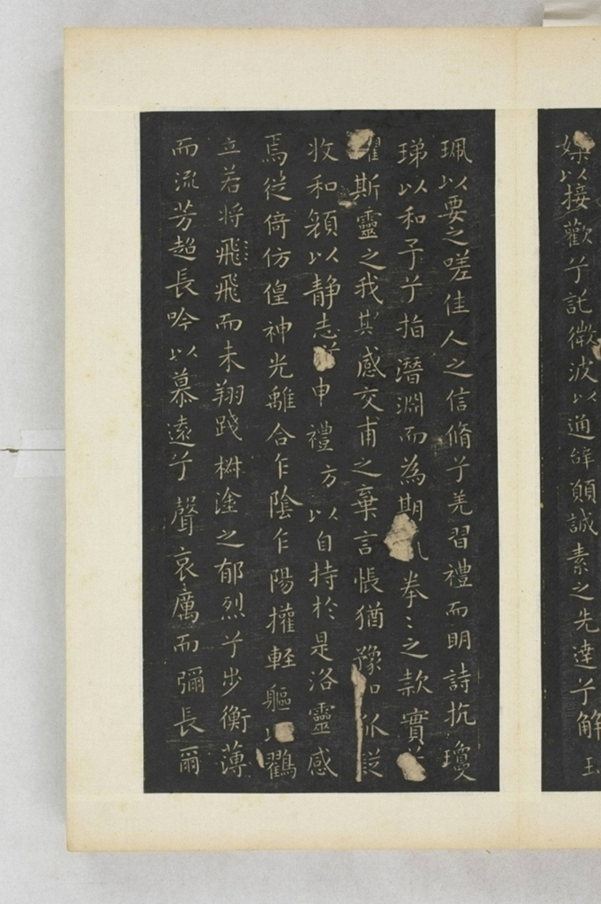 媒以接歡兮託微波以通辭願誠素之先達兮解玉
珮以要之嗟佳人之信脩兮羌習禮而明詩抗瓊
珶以和予兮指潛淵而為期執拳〻之款實
懼斯靈之我其感交甫之棄言悵猶豫而狐疑
收和顏以静志兮申禮方以自持於是洛靈感
焉徙倚仿偟神光離合乍陰乍陽擢軽軀以鶴
立若将飛飛而未翔踐椒塗之郁烈兮步衡薄
而流芳超長吟以慕遠兮聲哀厲而彌長爾